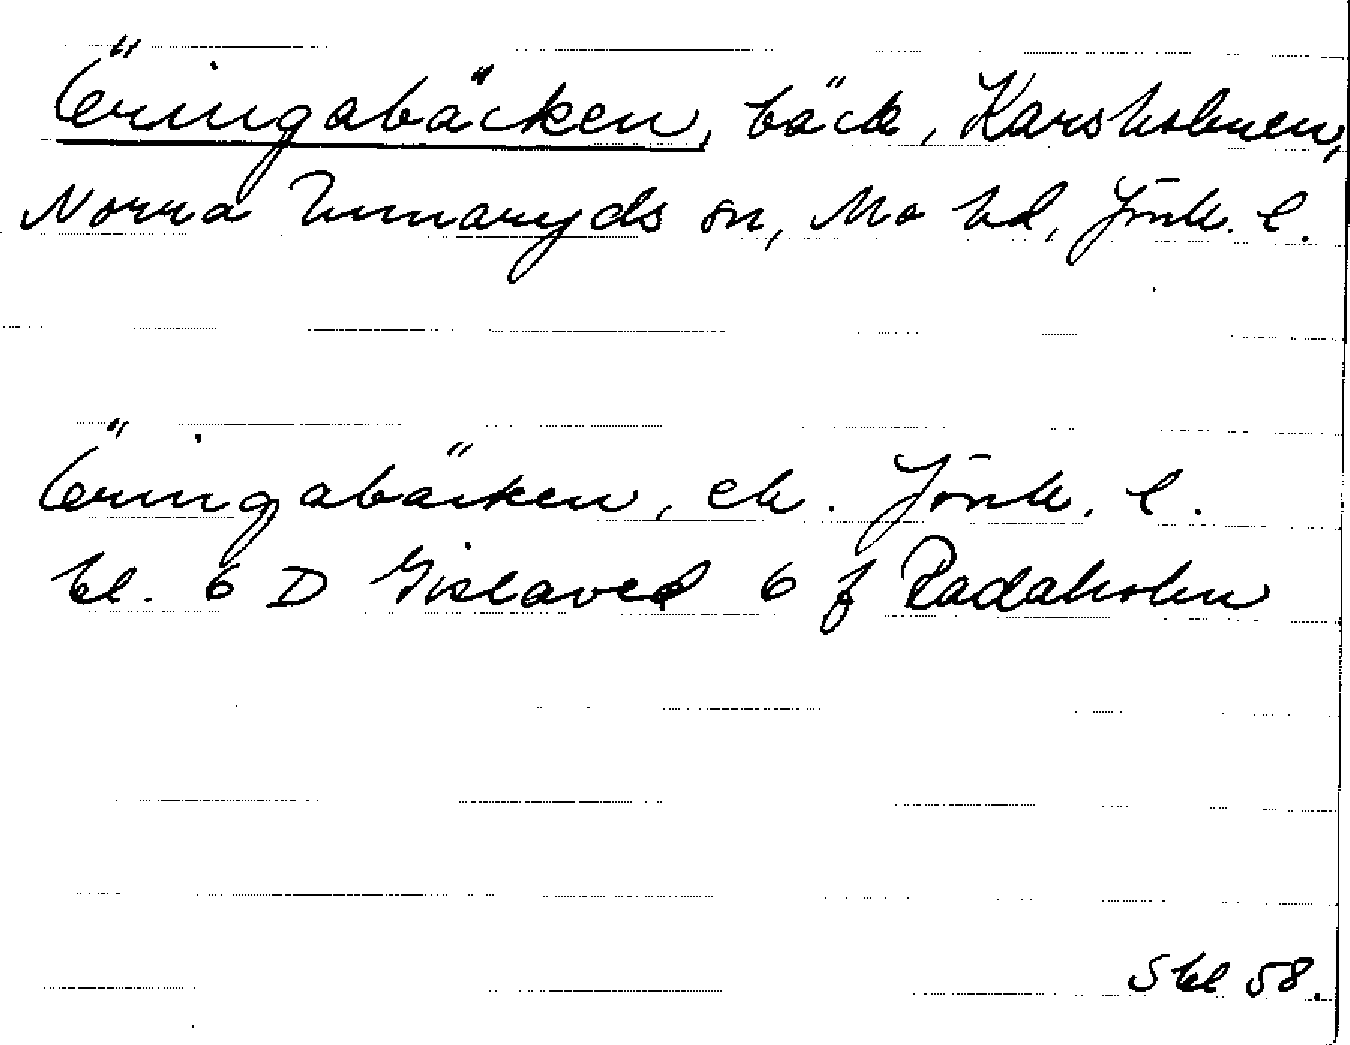 Öringabäcken, bäck, Karsholmen,
Norra Unnaryds sn, Mo hd, Jönk. l.
Öringabäcken, ek. Jönk. l.
bl. 6 D Gislaved 6 f Radaholm
Sbl 58.